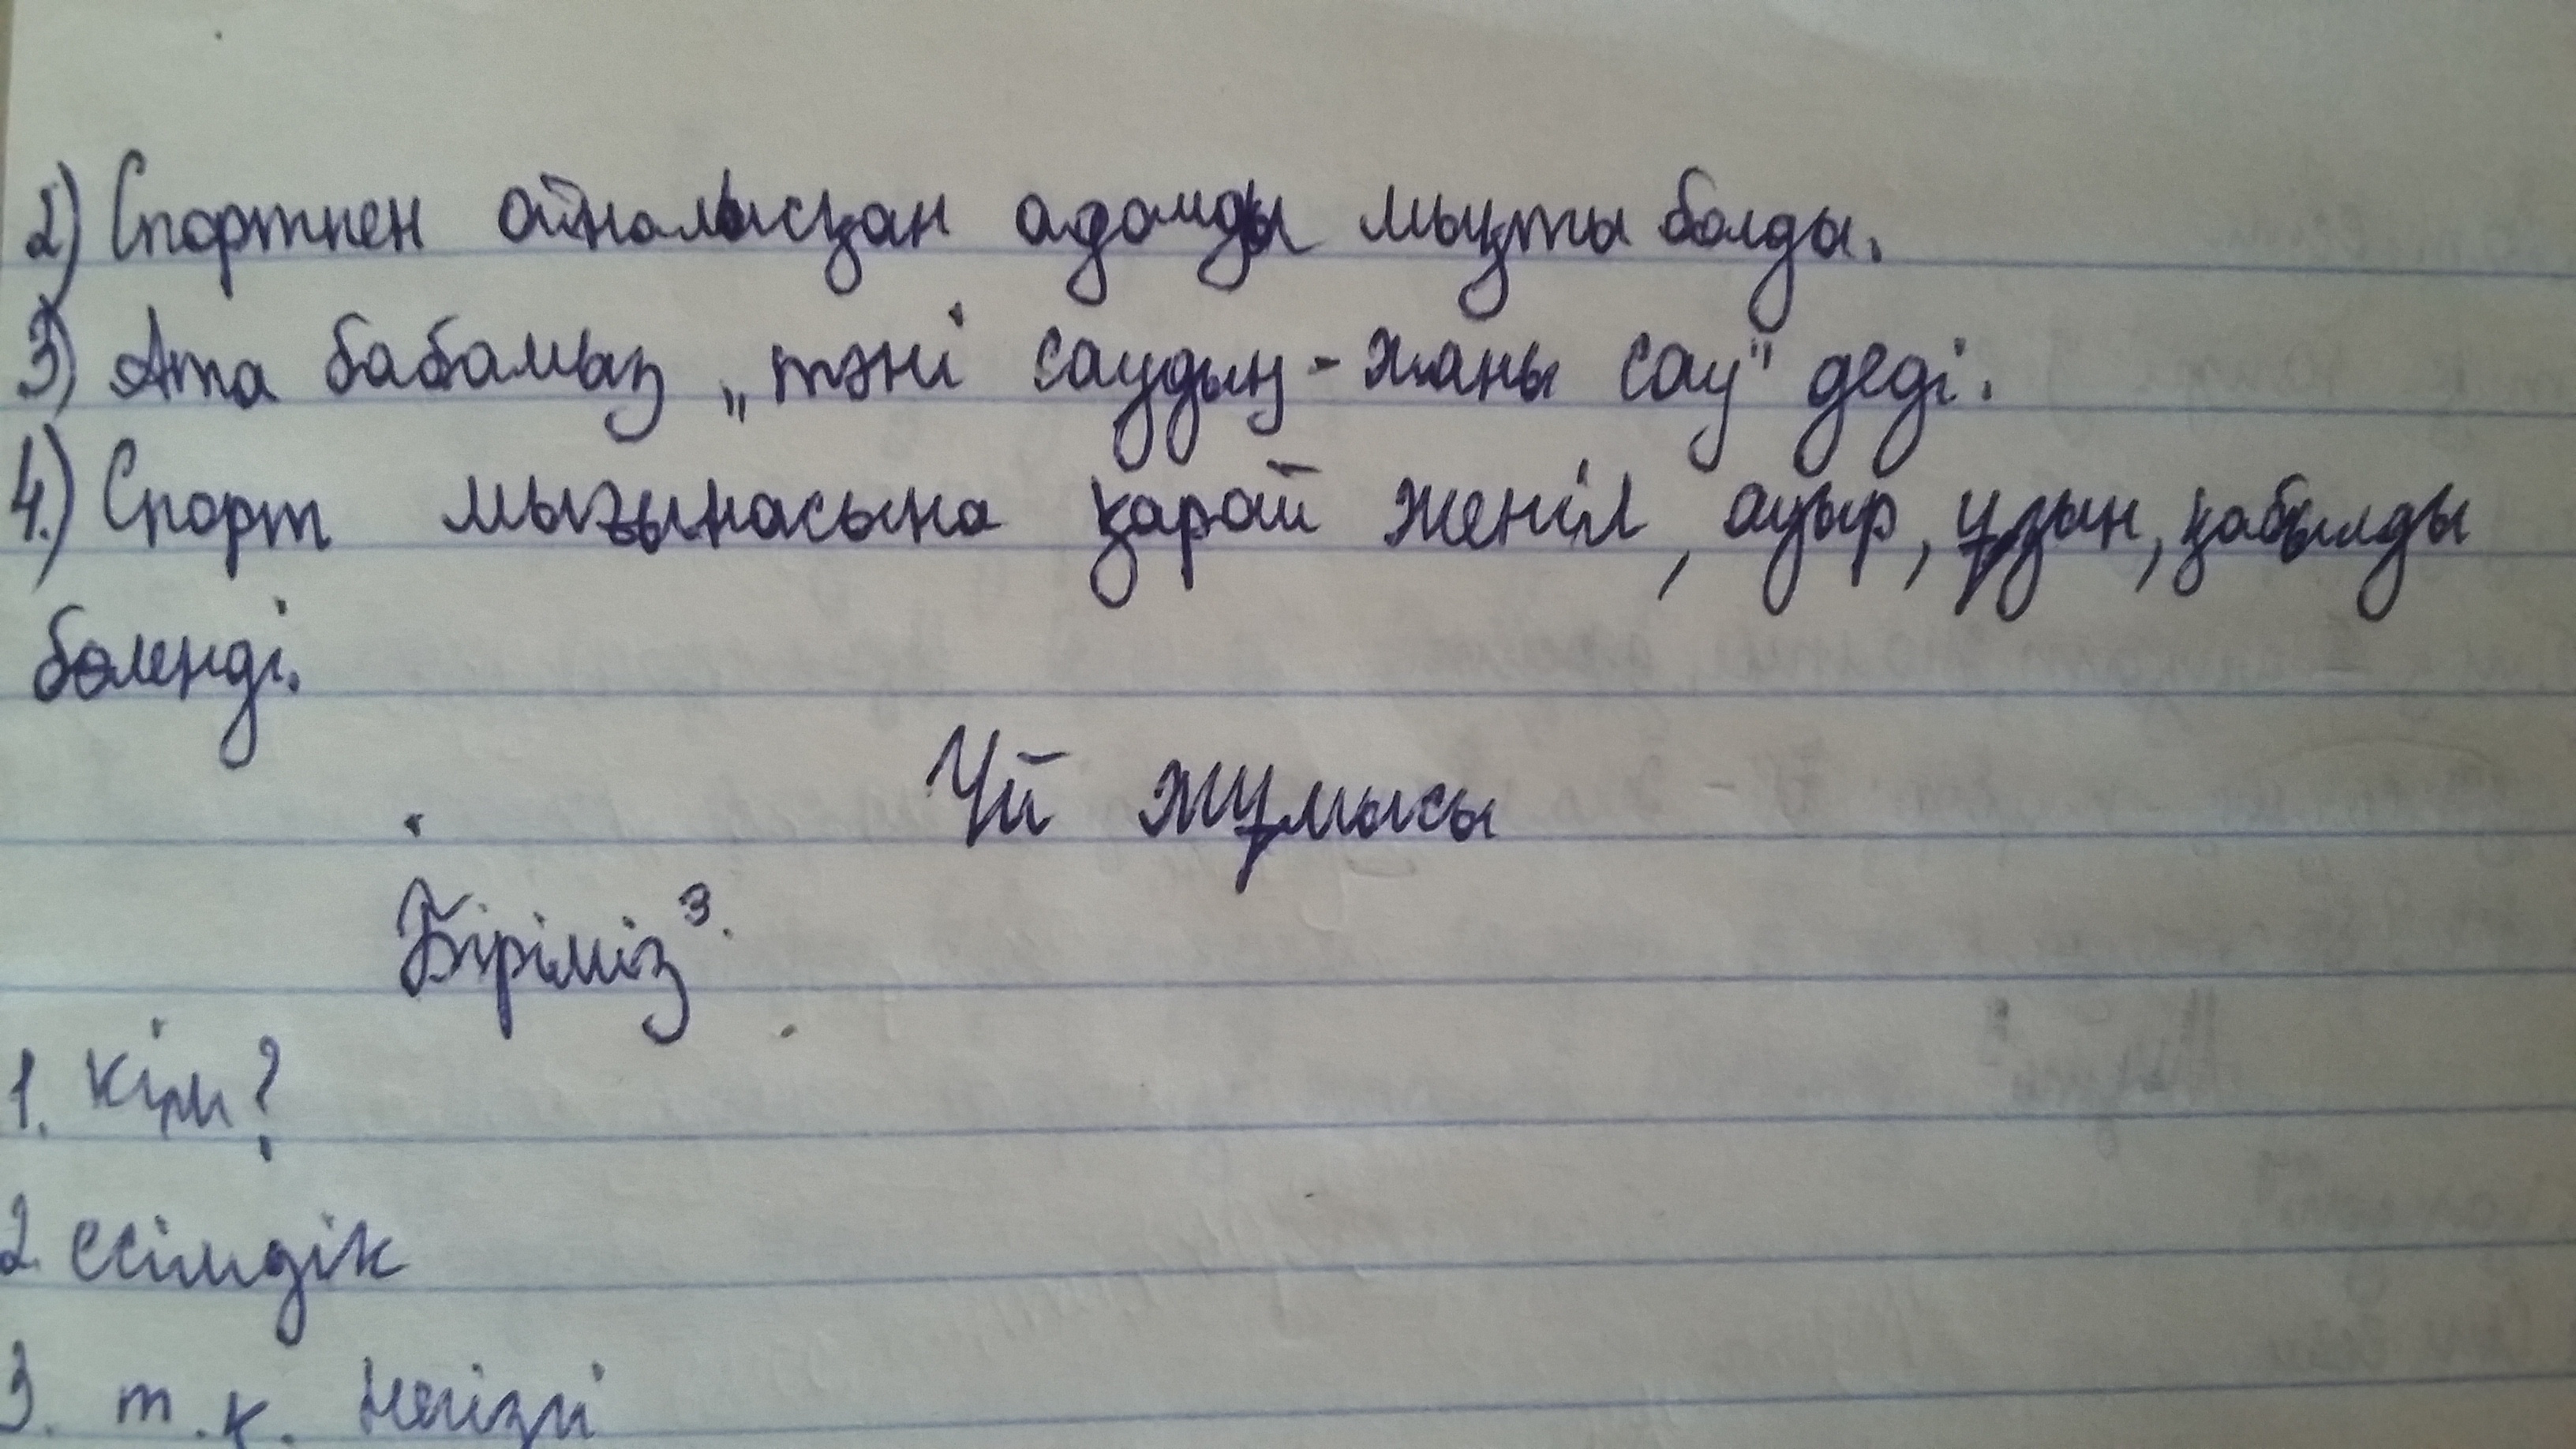 2) Спортпен айналысқан адамды мықты болды.
3) Ата бабамыз „тәні саудың - жаны сау" деді.
4.) Спорт мығынасына қарай женіл, ауыр, ұзын, қабылды
бөленді.
Үй жұмысы
Біріміз³.
1. Кім?
2. есімдік
3. т.к. негізгі